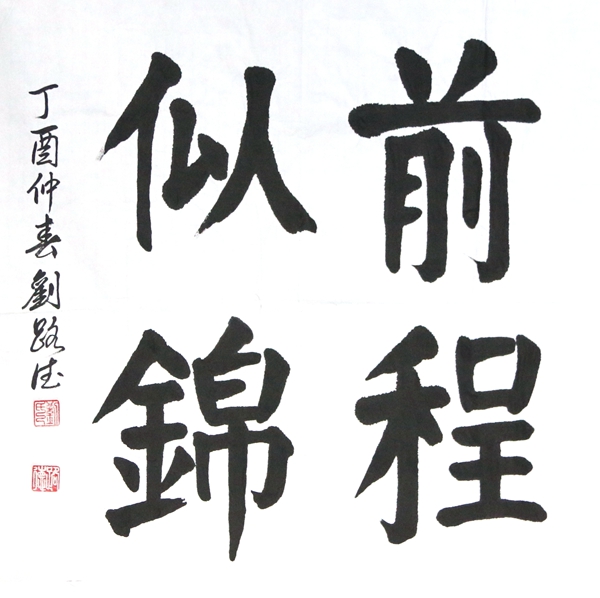 前程
似錦
丁酉仲春劉路德